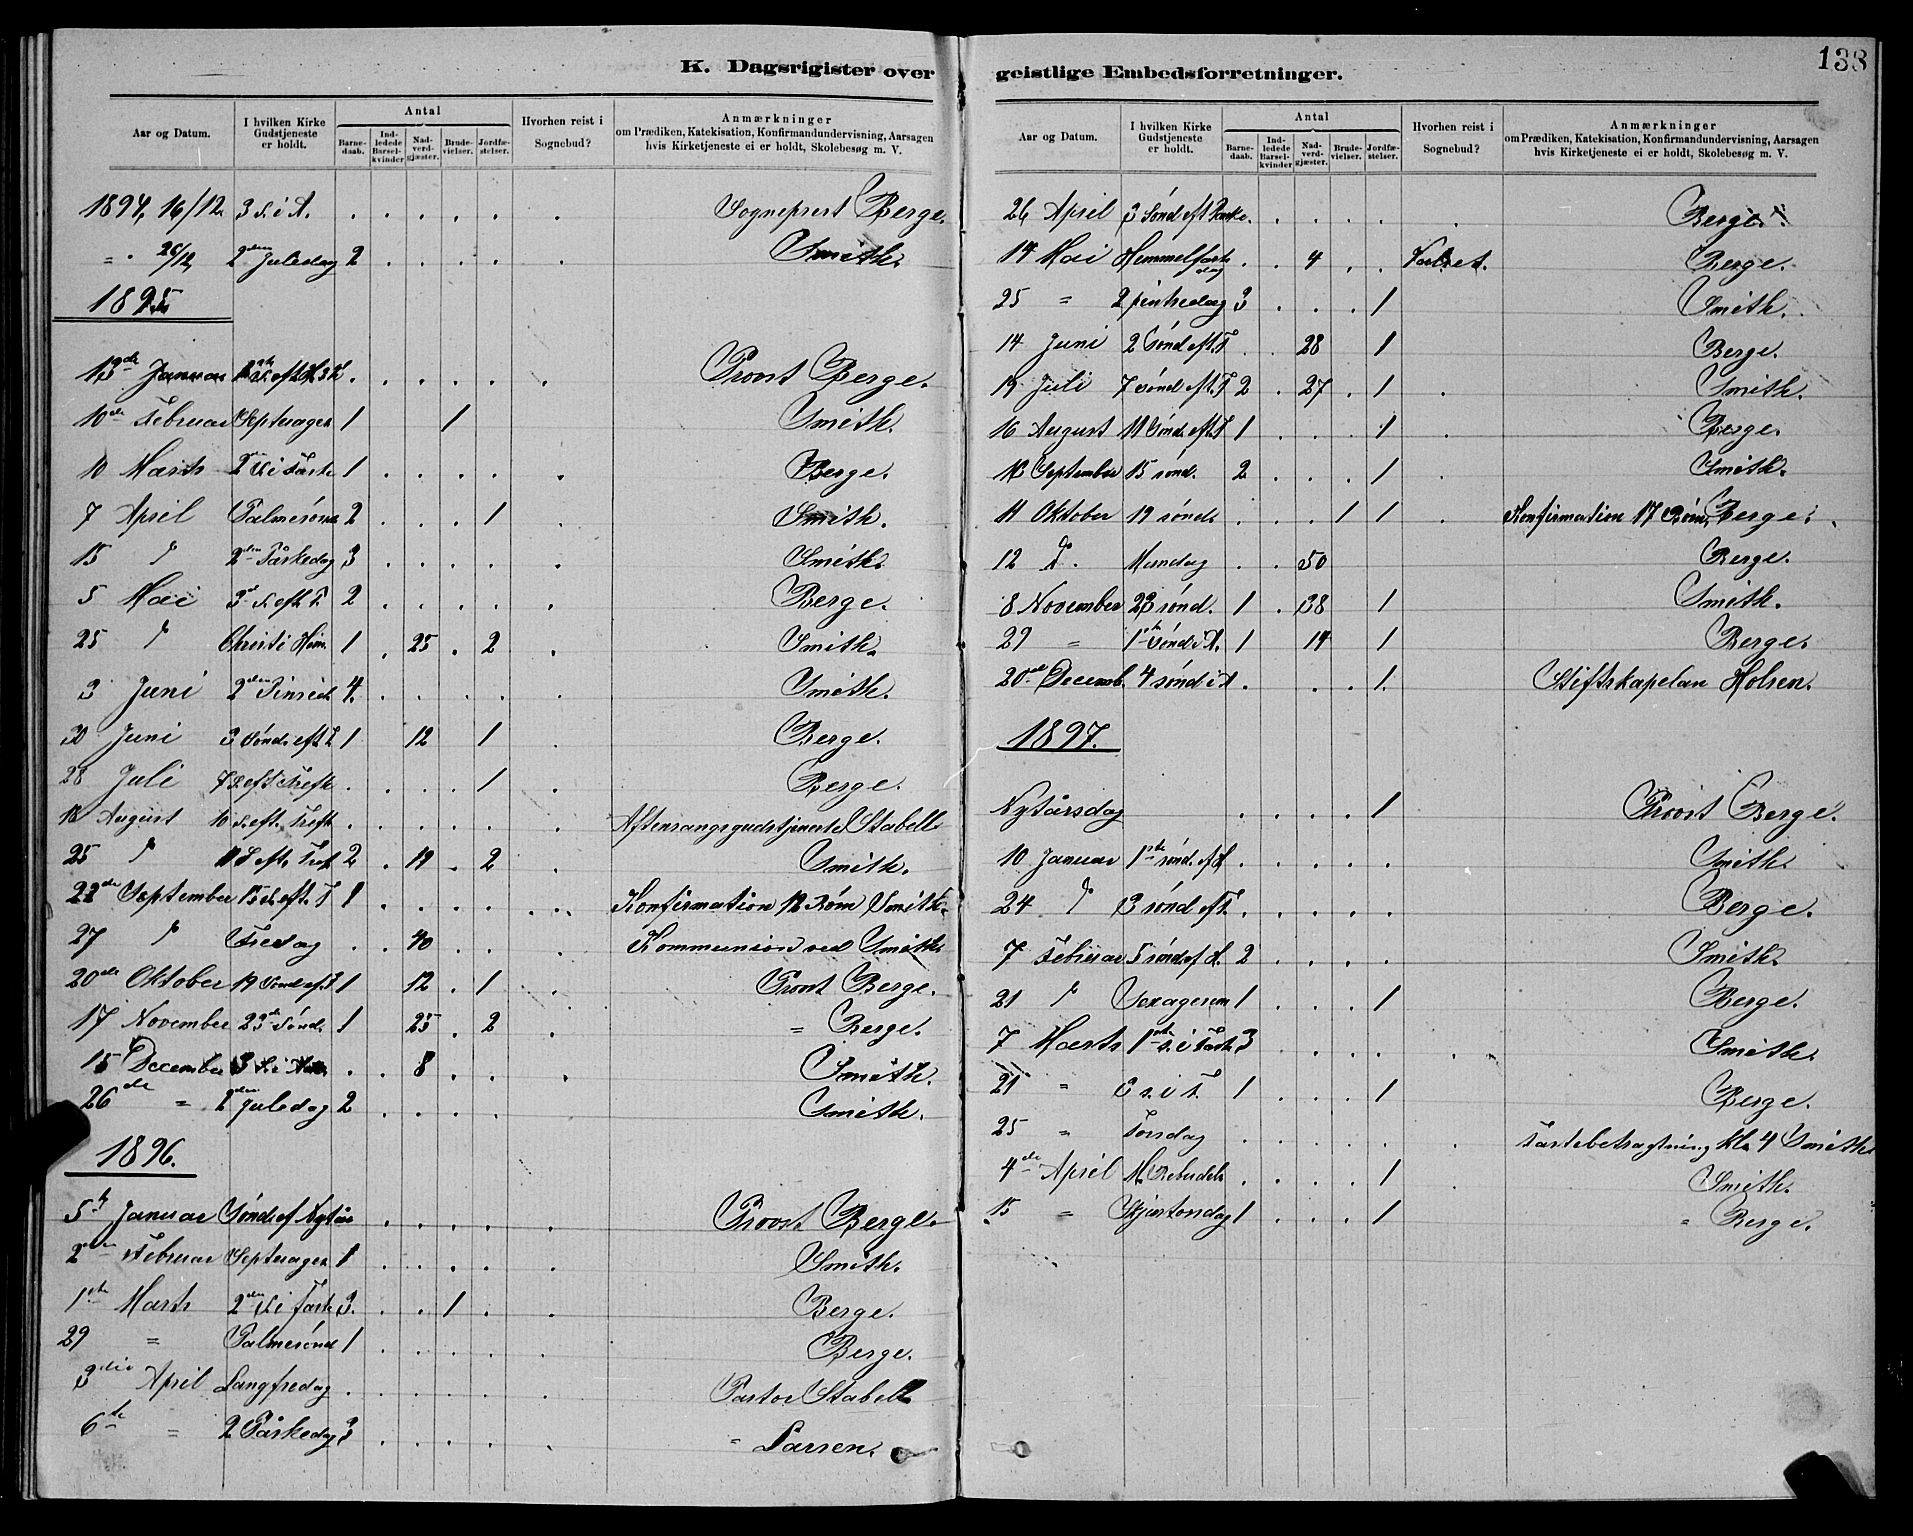 K. Dagsrigister over
Antal
Aar og Datum. I hvilken Kirke Gudstjeneste er holdt. Barne-daab. Ind-ledede Barsel-kvinder Nad-verd-gjæster. Brude-vielser. Jordfæ-stelser. Hvorhen reist i Sognebud? Anmærkninger om Prædiken, Katekisation, Konfirmandundervisning, Aarsagen hvis Kirketjeneste ei er holdt, Skolebesøg m. V.
1894, 16/12 3 S. i A. Sogneprest Berge.
" 26/12 2den Juledag 2 Smith.
1895
13de Januar Provst Berge.
10de Februar Septuages 1 1 Smith.
10 Marts 2 S i Faste 1 Berge.
7 April Palmesønd 2 1 Smith.
15 " 2den Påskedag 3 Smith.
5 Mai 3d S. eft P. 2 Berge.
25 " Christi Him. 1 25 2 Smith.
3 Juni 2den Pinsed 4 Smith.
30 Juni 3 Sønd. eft T. 1 12 1 Berge.
28 Juli 7 S. eft Trefh 1 Berge.
18 August 10 S. eft. Treft Aftensangsgudstjeneste Stabell
25 " 11 S eft. Tref 2 19 2 Smith.
22de September 15 S. eft. T 1 Konfirmation 12 Børn Smith.
27 " Fredag 40 Kommunion ved Smith
20de Oktober 19 Sønd ef. T 1 12 1 Provst Berge.
17 November 23de Sønd. 1 25 2 " Berge.
15 December 3 S. i 8 Smith.
26de " 2den Juledag 2 Smith.
1896.
5te Januar Sønd ef Nytår Provst Berge.
2den Februar Septuages 1 Smith.
1ste Marts 2den S. i Faste 3. 1 Berge.
29 " Palmesønd 1 Berge.
3die April Langfredag Pastor Stabell
6te " 2 Påskedag 3 " Larsen.
138
geistlige Embedsforretninger.
Antal
Aar og Datum. I hvilken Kirke Gudstjeneste er holdt. Barne-daab. Ind-ledede Barsel-kvinder Nad-verd-gjæster. Brude-vielser. Jordfæ-stelser. Hvorhen reist i Sognebud? Anmærkninger om Prædiken, Katekisation, Konfirmandundervisning, Aarsagen hvis Kirketjeneste ei er holdt, Skolebesøg m. V.
26 April 3 Sønd eft Paske. Berge.
14 Mai Hemmelfartsdag 4 Berge.
25 " 2 pintsedag 3 1 Smith.
14 Juni 2 Sønd eft. T 28 1 Berge.
19 Juli 7 Sønd eft. T 2 27 1 Smith.
16 August 11 Sønd. eft. T 1 1 Berge.
13 September 15 sønd. 2 1 Smith.
11 Oktober 19 sønd. 1 1 Konfirmation 17 Børn, Berge.
12 Do. Mandag 50 Berge.
8 November 23 sønd. 1 38 1 Smith.
29 " 1ste Sønd i A. 1 14 1 Berge.
20de Decemb. 4 sønd i A 1. Stiftskapelan Holsen.
1897.
Nytårsdag 1 Provst Berge.
10 Januar 1ste sønd. ef H. Smith.
24 " 3 sønd eft. Berge.
7 Februar 5 sønd ef H. 2 Smith.
21 " Sexagesem 1 1 Berge.
7 Marts 1ste s. i Fast. 3 Smith.
21 " 3 s. i F. 1 1 Berge.
25 " Torsdag Fastebetragtning kl. 4 Smith
4de April M. Bebudels 1 Smith.
15 " Skjærtorsdag 1 1 " Berge.